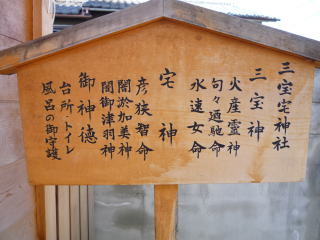 三宝宅神社
三宝神
火産霊神
句々廼馳命
水速女命
宅神
彦狭智命
闇於加美神
闇御津羽神
御神徳
台所・トイレ
風呂の御守護